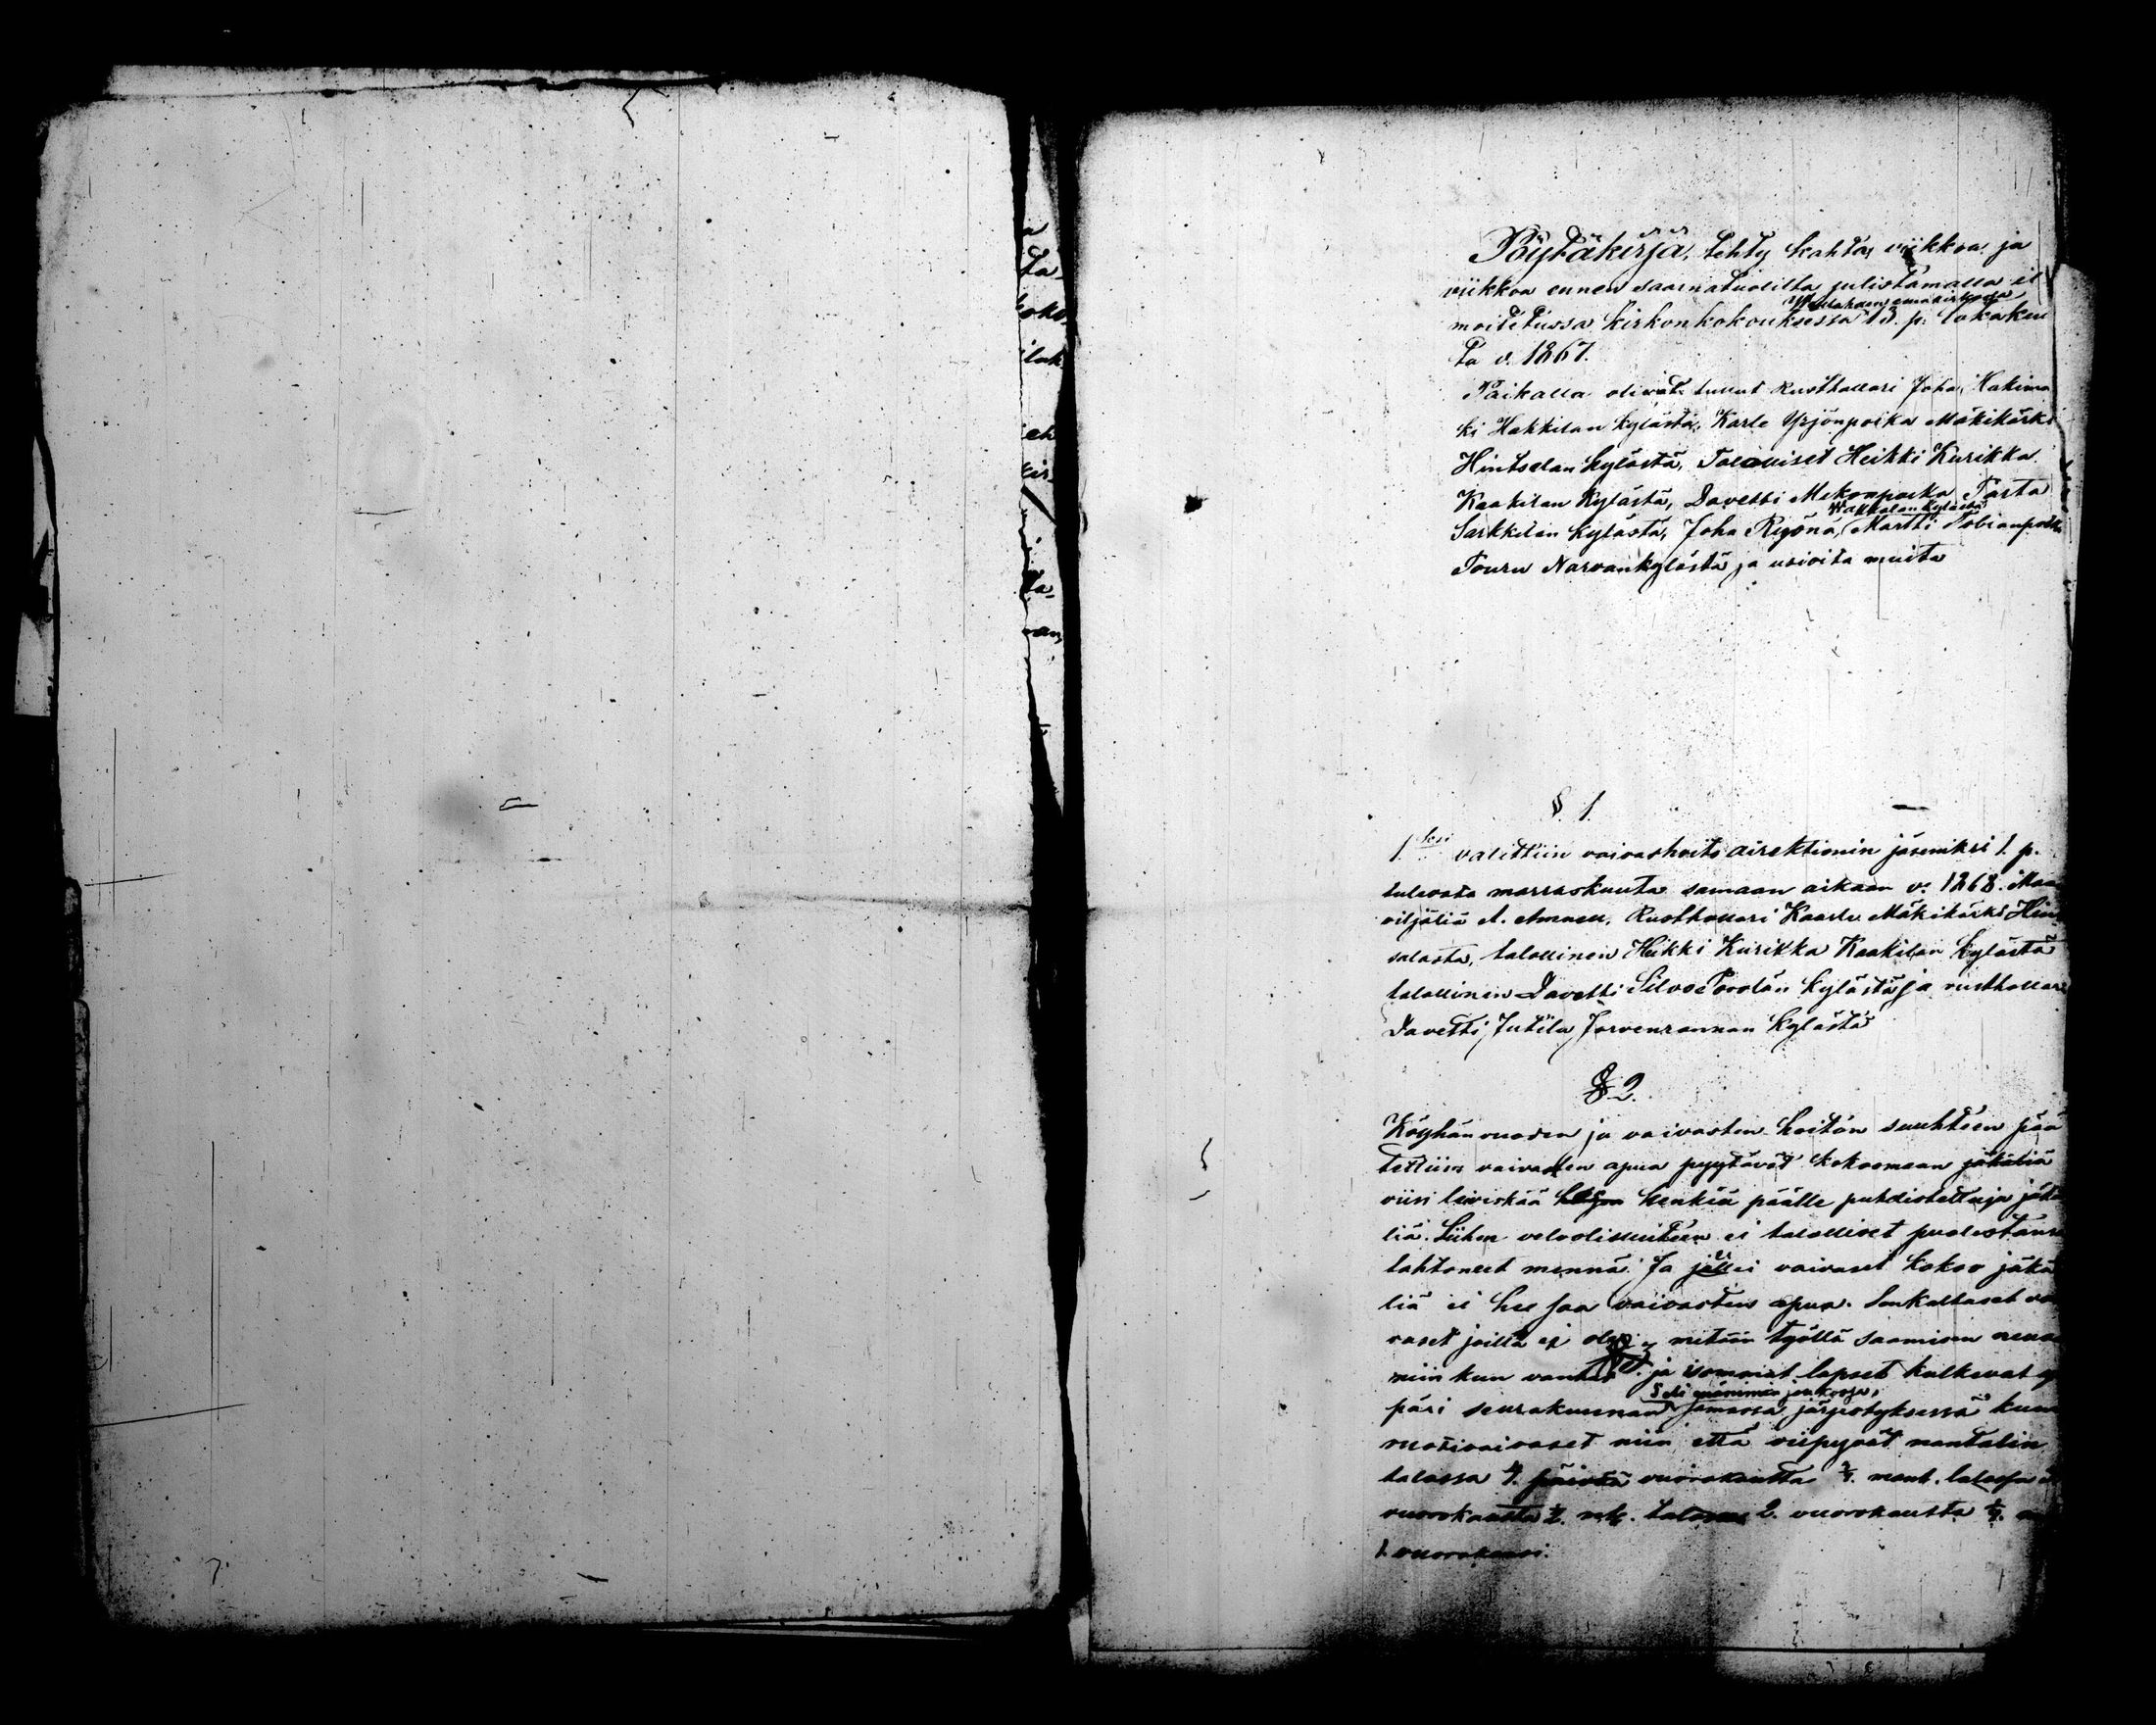 Pöytäkirja, tehty kahta, viikkoa ja
viikkoa ennen saarnatuolilta julistamalla il
Wesilahden emäkirkossa
moitetussa kirkonkokouksessa 13. p. lokakuu
ta v. 1867.
Paikalla olivat tullut Rusthollari Juha, Hakima
ki Hakkilan kylästä, Karle Yrjönpoika Mäkikärki
Hintsalan kylästä, Talolliset Heikki Kurikka
Kaakilan kylästä, Davetti Mekonpoika Pasta
Wakkalankylästä
Sarkkilan kylästä, Joha Martti Tobianpoika
Touru Narvankylästä ja usioita muita
§. 1.
1. ksi valittiin vaivashoito direktionin jäseniksi 1. p.
tulevata marraskuuta samaan aikaan v. 1868. Maa
viljäliä A. Rusthollari Kaarlu Mäkikärki Hin
salasta, talollinen Heikki Kurikka Kaakilan kylästä
talollinen Davetti Silvo Porolan kylästä ja rusthollari
Davetti Jutila Jarvenrannan kylästä
§ 2.
Köyhän vuoden ja vaivasten hoiton suuhteen pää
tettiin vaivasten apua pyytävät kokoomaan jäkäliä
viisi leiviskää henkiä päälle puhdistettuja jäkä
liä. Siihen velvolisuuteen ei talolliset puolestansa
tahtoneet mennä. Ja jollei vaivaset kokoo jäkä
liä ei hee saa vaivasten apua. Senkaltaset vai
vaset joilla ei ole mitään työllä saamisen neuvo
niin kun vanhat ja isommat lapset kulkevat y
päri seurakunnan samassa järjestyksessä kuin
vuotivaivaset niin että viipyvät mantalin
talossa 4. päivää vuorokautta 3/4. mant. talossa
vuorokautta 1/2. mt. talossa 2. vuorokautta 1/4.
1. vuorokausi.